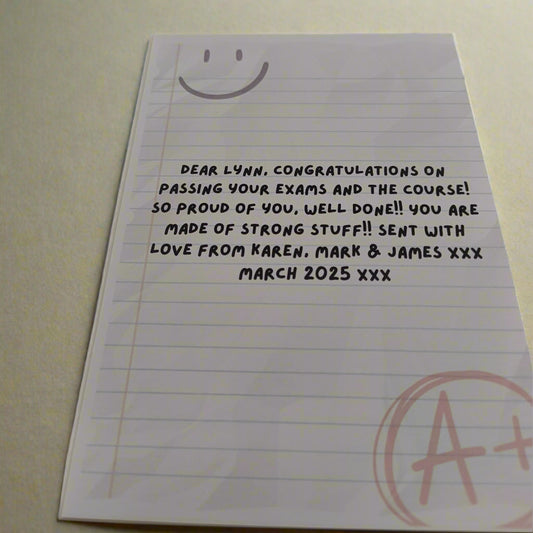 DEAR LYNN, CONGRATULATIONS ON
PASSING YOUR EXAMS AND THE COURSE!
SO PROUD OF YOU, WELL DONE!! YOU ARE
MADE OF STRONG STUFF!! SENT WITH
LOVE FROM KAREN, MARK & JAMES XXX
MARCH 2025 XXX
A+